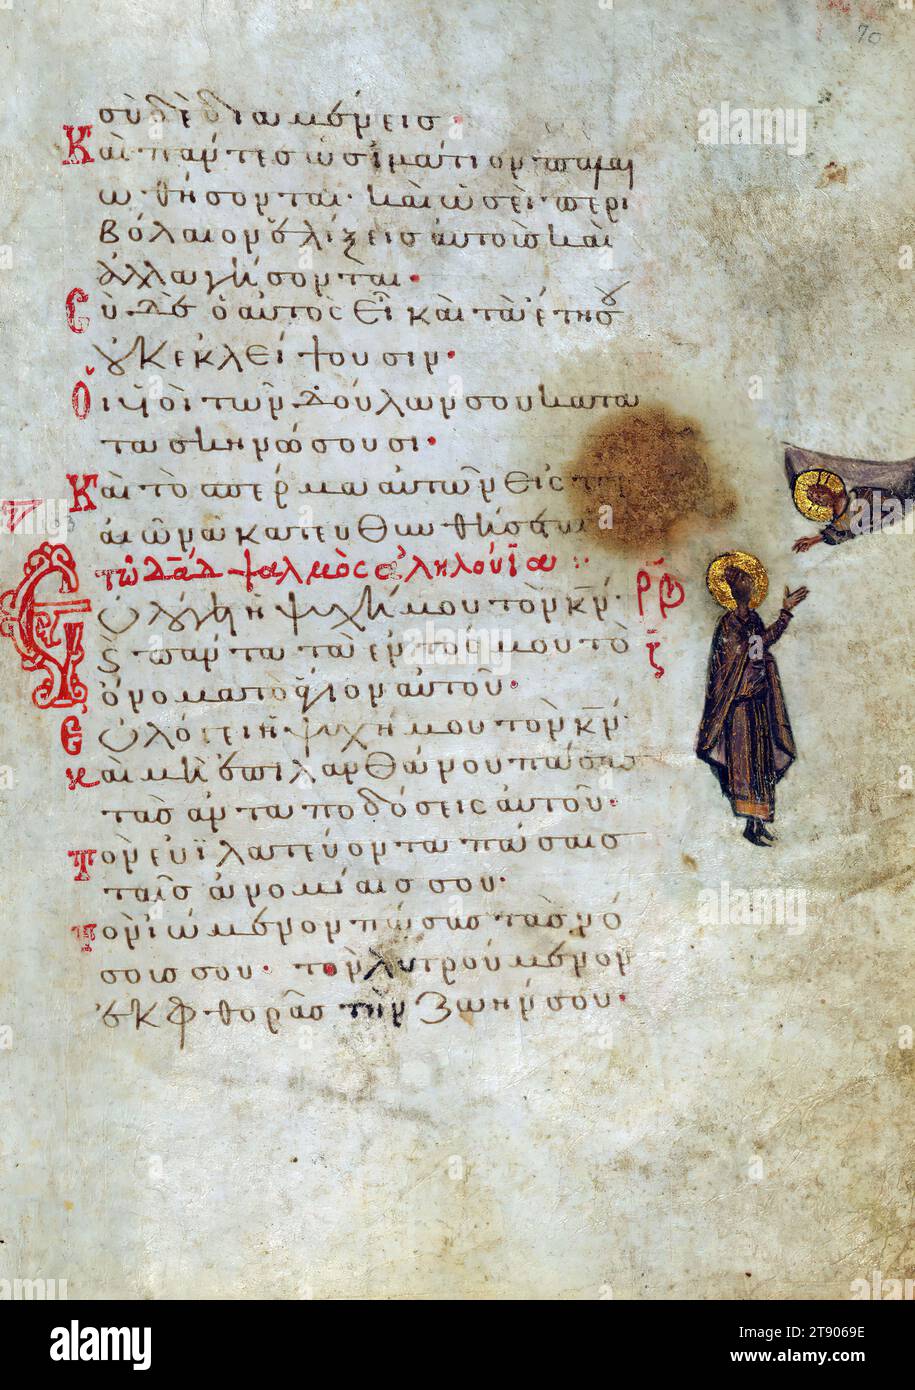 70
σὺ δὲ διαμένεις·
Καὶ πάντες ὡς ἱμάτιον παλαι
ωθήσονται· καὶ ὡσεὶ περι
βόλαιον ἑλίξεις αὐτοὺς καὶ
ἀλλαγήσονται·
Σὺ δὲ ὁ αὐτὸς εἶ καὶ τὰ ἔτη σου
οὐκ ἐκλείψουσιν·
Οἱ υἱοὶ τῶν δούλων σου κατα
σκηνώσουσι·
Καὶ τὸ σπέρμα αὐτῶν εἰς τὸν
αἰῶνα κατευθυνθήσεται
τῶ δαδ ψαλμὸς ἀληλούϊα:
Εὐλόγει ἡ ψυχή μου τὸν κν·
ρβ
ϛ πάντα τὰ ἐντός μου τὸ
ὄνομα τὸ ἅγιον αὐτοῦ·
Εὐλόγει ἡ ψυχή μου τὸν κν·
καὶ μὴ ἐπιλανθάνου πάσας
τὰς ἀνταποδόσεις αὐτοῦ·
τὸν εὐϊλατεύοντα πάσαις
ταῖς ἀνομίαις σου·
τὸν ἰώμενον πάσας τὰς νό
σους σου· τὸν λυτρούμενον
ἐκ φθορᾶς τὴν ζωήν σου·
alamy
alamy
Image ID: 2T9069E
www.alamy.com